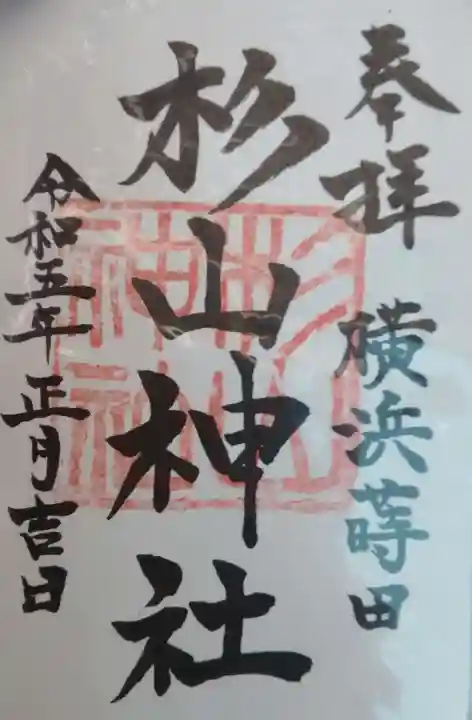 奉拝 横浜蒔田
杉山神社
令和五年 正月吉日
杉山
神社